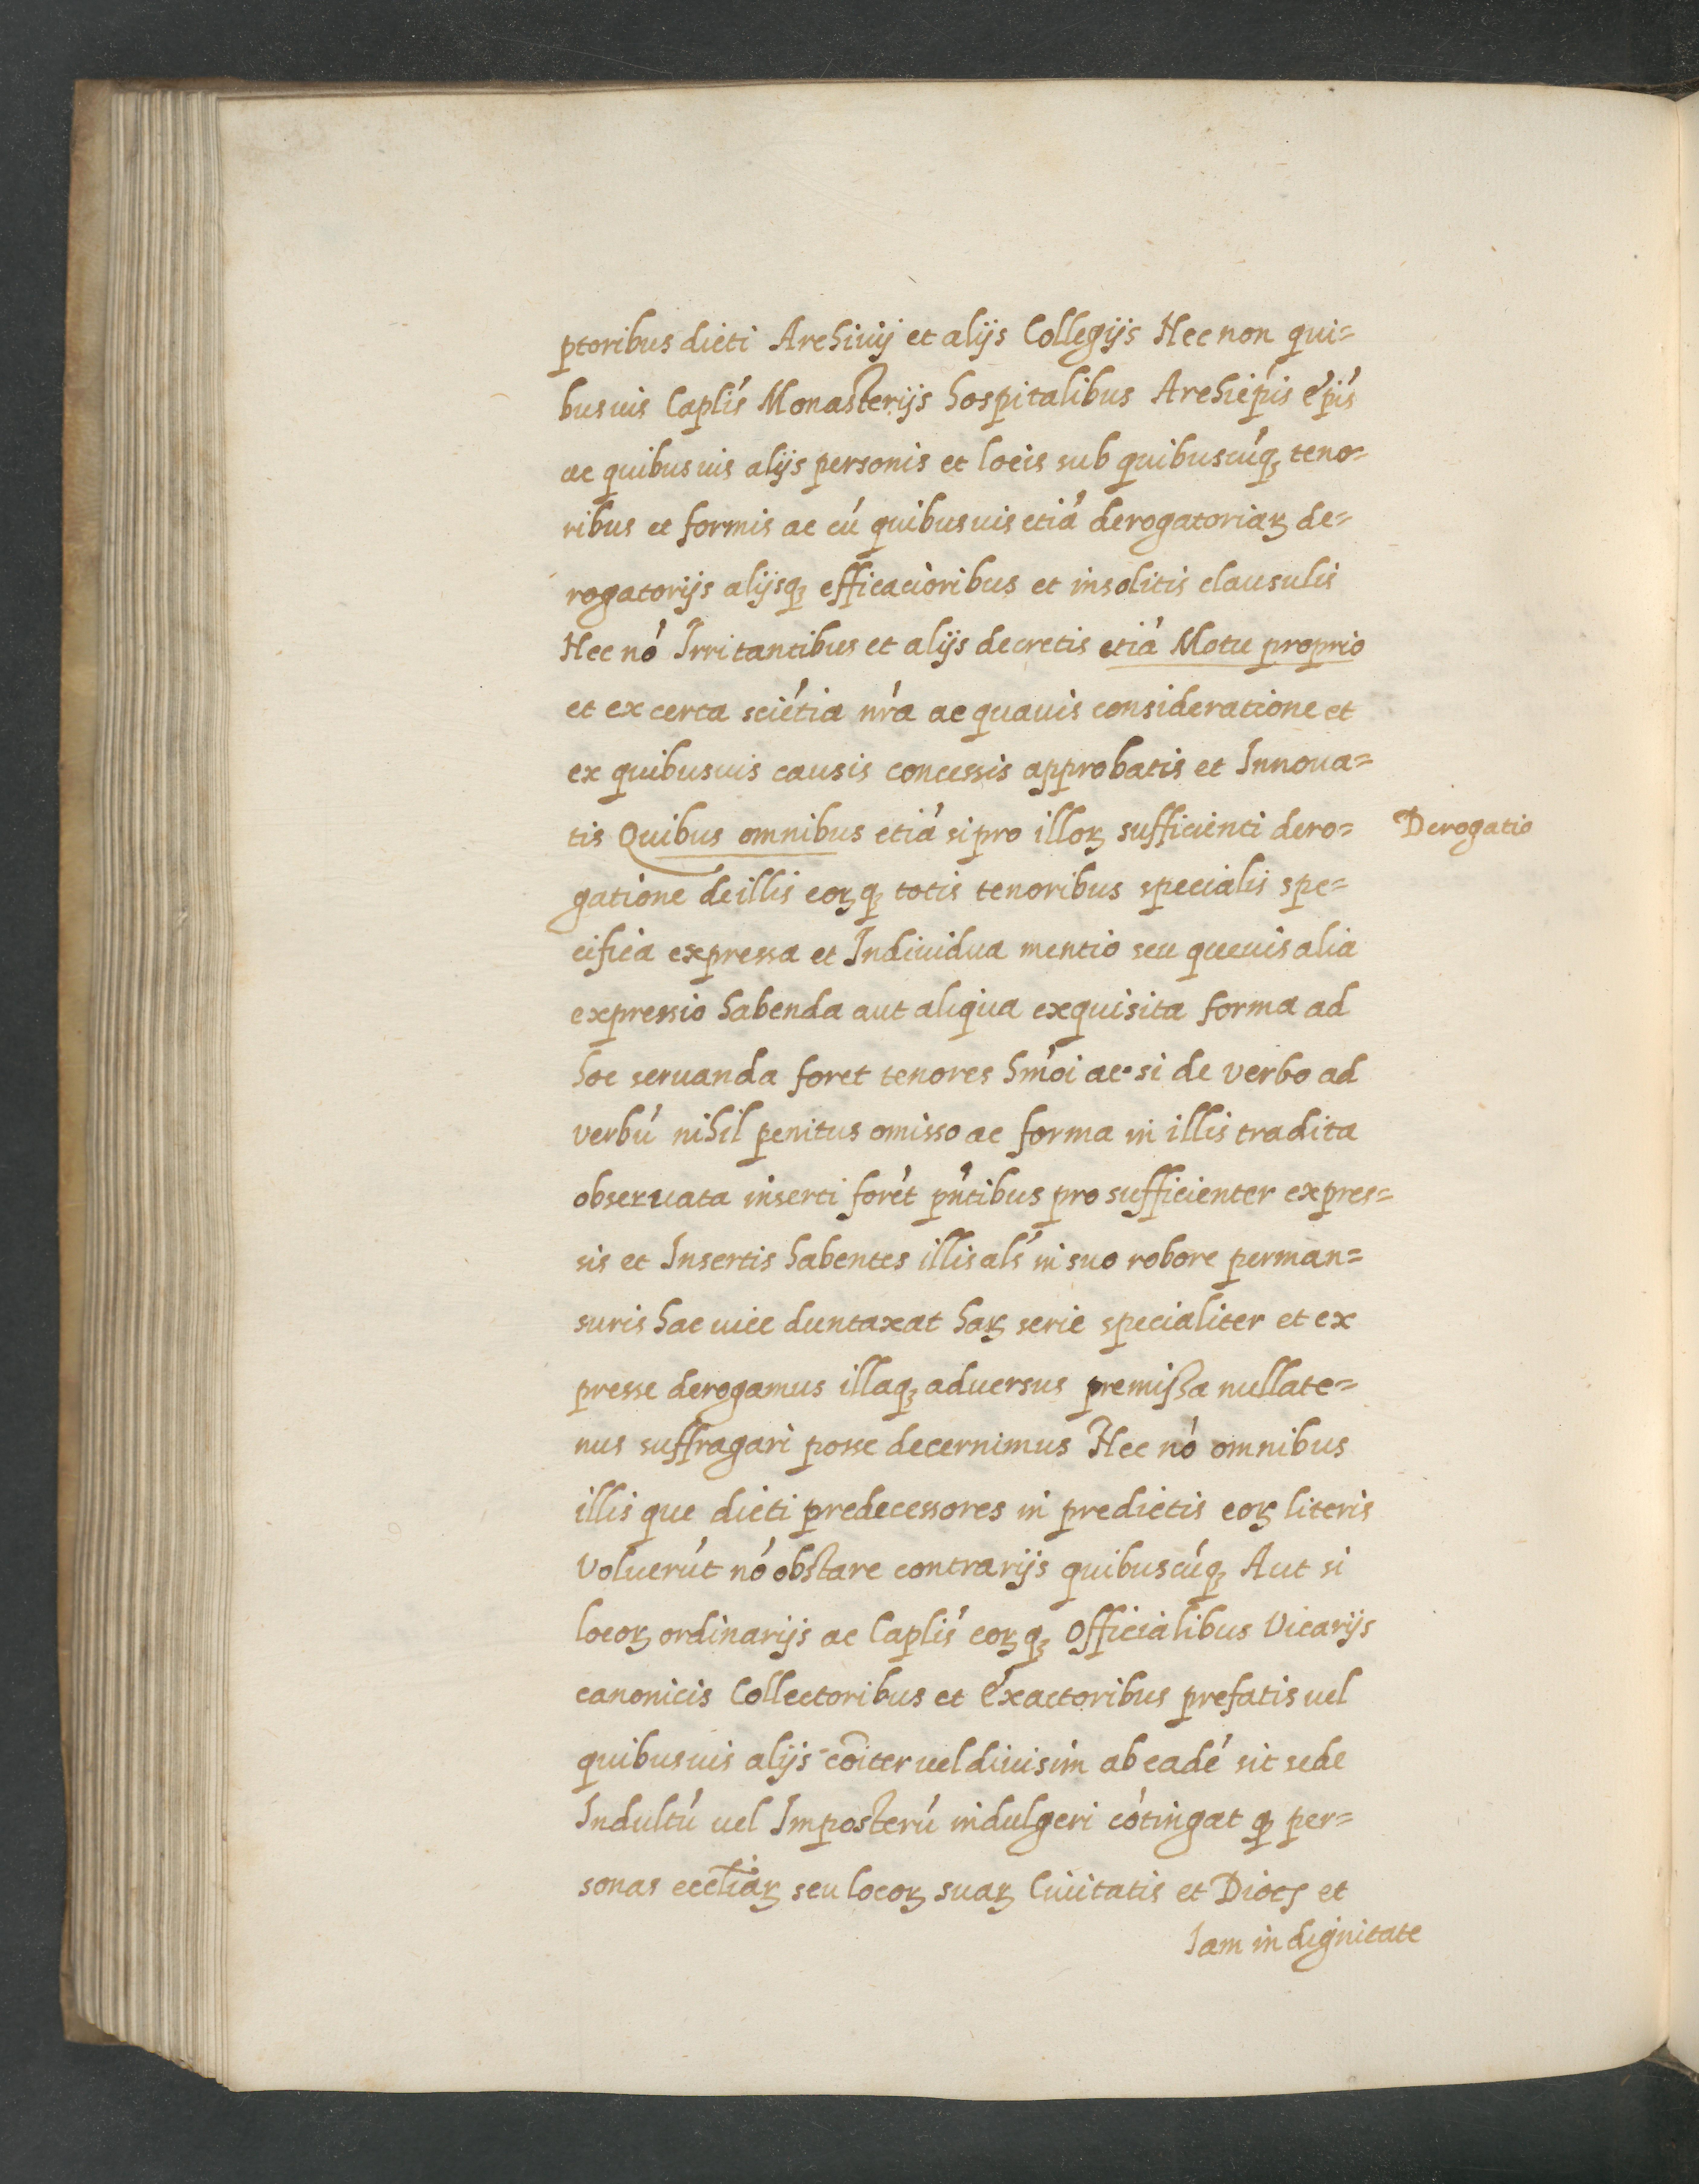 ptoribus dicti Archiuij et alijs Collegijs Nec non qui=
busuis Capliś Monasterijs hospitalibus Archiep̃is ép̃is
ac quibusuis alijs personis et locis sub quibuscúqꝫ teno=
ribus et formis ac cú quibusuis etiá derogatoriaꝝ de=
rogatorijs alijsqꝫ efficacioribus et insolitis clausulis
Nec nó Irritantibus et alijs decretis etiá Motu proprio
et ex certa sciétia nŕa ac quauis consideratione et
ex quibusuis causis concessis approbatis et Innoua=
tis Quibus omnibus etiá si pro illoꝝ sufficienti dero=
Derogatio
gatione de illis eoꝝqꝫ totis tenoribus specialis spe=
cifica expressa et Indiuidua mentio seu queuis alia
expressio habenda aut aliqua exquisita forma ad
hoc seruanda foret tenores hm̃oi ac si de verbo ad
verbú nihil penitus omisso ac forma in illis tradita
obseruata inserti forét pñtibus pro sufficienter expres=
sis et Insertis habentes illis alś in suo robore perman=
suris hac uice duntaxat haꝝ serie specialiter et ex
presse derogamus illaqꝫ aduersus premissa nullate=
nus suffragari posse decernimus Nec nó omnibus
illis que dicti predecessores in predictis eoꝝ literis
voluerút nó obstare contrarijs quibuscúqꝫ Aut si
locoꝝ ordinarijs ac Capliś eoꝝqꝫ Officialibus Vicarijs
canonicis Collectoribus et éxactoribus prefatis uel
quibusuis alijs cõiter uel diuisim ab eadé sit sede
Indultú uel Imposterú indulgeri cótingat qꝫ per=
sonas eccl̃iaꝝ seu locoꝝ suaꝝ Ciuitatis et Diocꝭ et
Iam in dignitate